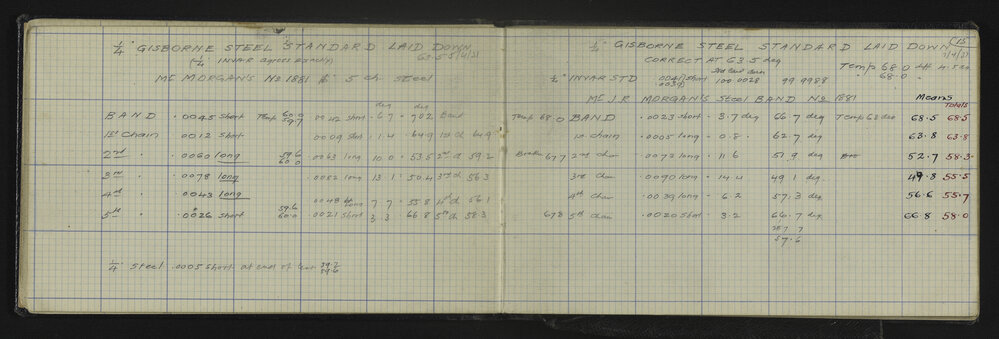 1/4" GISBORNE STEEL STANDARD LAID DOWN
(1/4" INVAR agrees exactly)
Mc MORGAN'S No 1881 5 ch. Steel
deg deg
BAND .0045 short Temp 60.0 59.7 .0042 short 6.7 = 70.2 Band
1st Chain .0012 short .0009 short 1.4 64.9 1st ch 64.9
2nd " .0060 long 59.6 60.0 .0063 long 10.0 = 53.5 2nd ch 59.2
3rd " .0078 long .0082 long 13.1 50.4 3rd ch 56.3
4th " .0043 long .0048 long 7.7 = 55.8 4th ch 56.1
5th " .0026 short 59.6 60.0 .0021 short 3.3 66.8 5th ch 58.3
1/4" Steel .0005 short at end of test 59.2 59.6
15
1/2" GISBORNE STEEL STANDARD LAID DOWN
CORRECT AT 63.5 deg
Temp 68.0
68.0
1/2" INVAR STD short 100.0028 99.9988
Mc J.R. MORGAN'S Steel BAND No 1881
Means
Totals
Temp 68.0 BAND .0023 short - 3.7 deg 66.7 deg Temp 68 deg 68.5 68.5
1st chain .0005 long - 0.8. 62.7 deg 63.8 63.8
67.7 2nd chan .0072 long - 11.6 51.9 deg 52.7 58.3
3rd Chan .0090 long - 14.4 49.1 deg 49.8 55.5
4th Chan .0039 long - 6.2 57.3 deg 56.6 55.7
67.8 5th Chan .0020 short - 3.2 66.7 deg 66.8 58.0
287.7
57.6